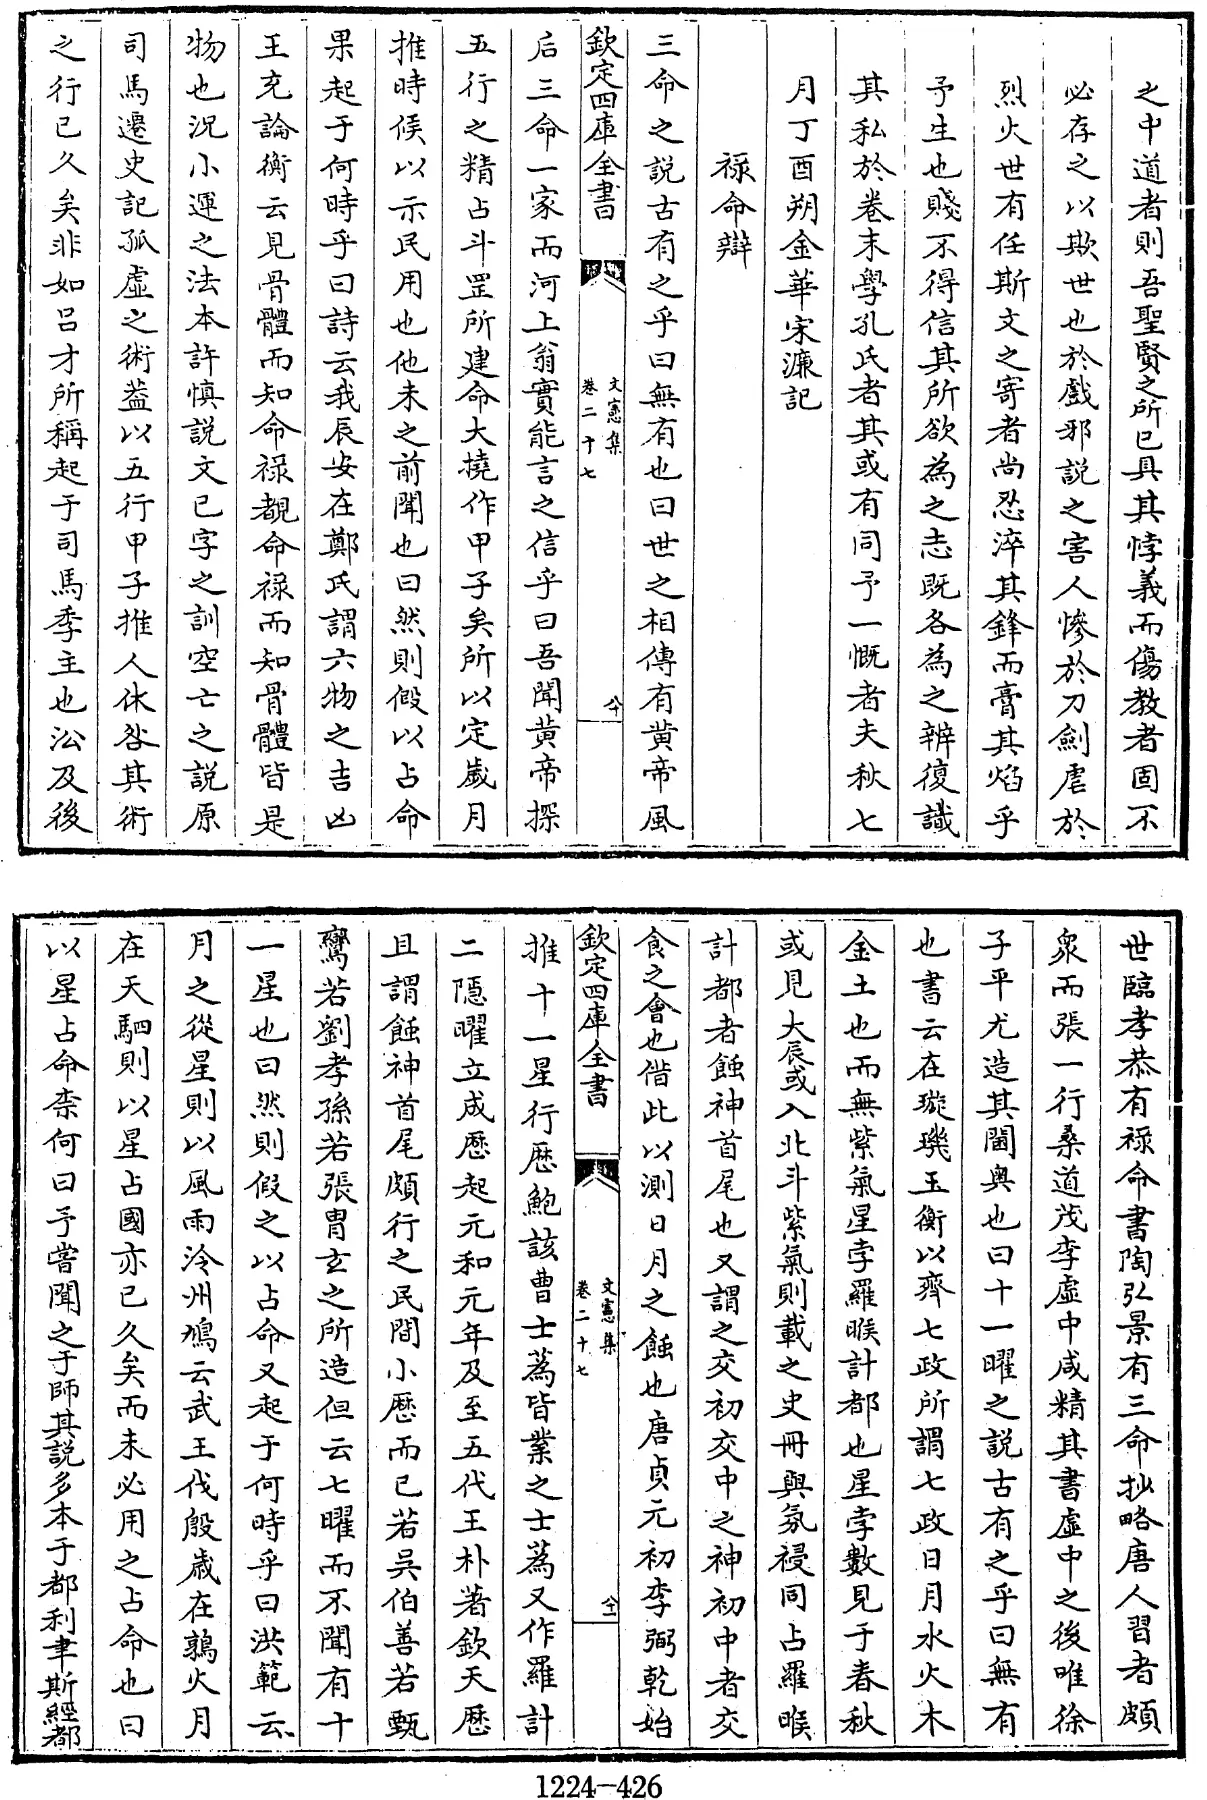 之中道者則吾聖賢之所已具其悖義而傷教者固不
必存之以欺世也於戲邪說之害人慘於刀劍虐於
烈火世有任斯文之寄者尚忍淬其鋒而膏其焰乎
予生也賤不得信其所欲為之志既各為之辨復識
其私於卷末學孔氏者其或有同予一慨者夫秋七
月丁酉朔金華宋濂記
祿命辯
三命之說古有之乎曰無有也曰世之相傳有黄帝風
欽定四庫全書
文憲集
卷二十七
六十
后三命一家而河上翁實能言之信乎曰吾聞黄帝探
五行之精占斗罡所建命大撓作甲子矣所以定歲月
推時候以示民用也他未之前聞也曰然則假以占命
果起于何時乎曰詩云我辰安在鄭氏謂六物之吉凶
王充論衡云見骨體而知命祿覩命祿而知骨體皆是
物也況小運之法本許慎說文巳字之訓空亡之說原
司馬遷史記孤虛之術葢以五行甲子推人休咎其術
之行已久矣非如吕才所稱起于司馬季主也沿及後
世臨孝恭有祿命書陶弘景有三命抄略唐人習者頗
衆而張一行桑道茂李虛中咸精其書虛中之後唯徐
子平尤造其閫奥也曰十一曜之說古有之乎曰無有
也書云在璇璣玉衡以齊七政所謂七政日月水火木
金土也而無紫氣星孛羅睺計都也星孛數見于春秋
或見大辰或入北斗紫氣則載之史冊與氛祲同占羅睺
計都者蝕神首尾也又謂之交初交中之神初中者交
食之會也偕此以測日月之蝕也唐貞元初李弼乾始
欽定四庫全書
文憲集
卷二十七
六十一
推十一星行歴鮑該曹士蒍皆業之士蒍又作羅計
二隱曜立成歴起元和元年及至五代王朴著欽天歴
且謂蝕神首尾頗行之民間小歴而已若吳伯善若甄
鸞若劉孝孫若張胄玄之所造但云七曜而不聞有十
一星也曰然則假之以占命又起于何時乎曰洪範云
月之從星則以風雨泠州鳩云武王伐殷歲在鶉火月
在天駟則以星占國亦已久矣而未必用之占命也曰
以星占命柰何曰予嘗聞之于師其說多本于都利聿斯經都
1224-426